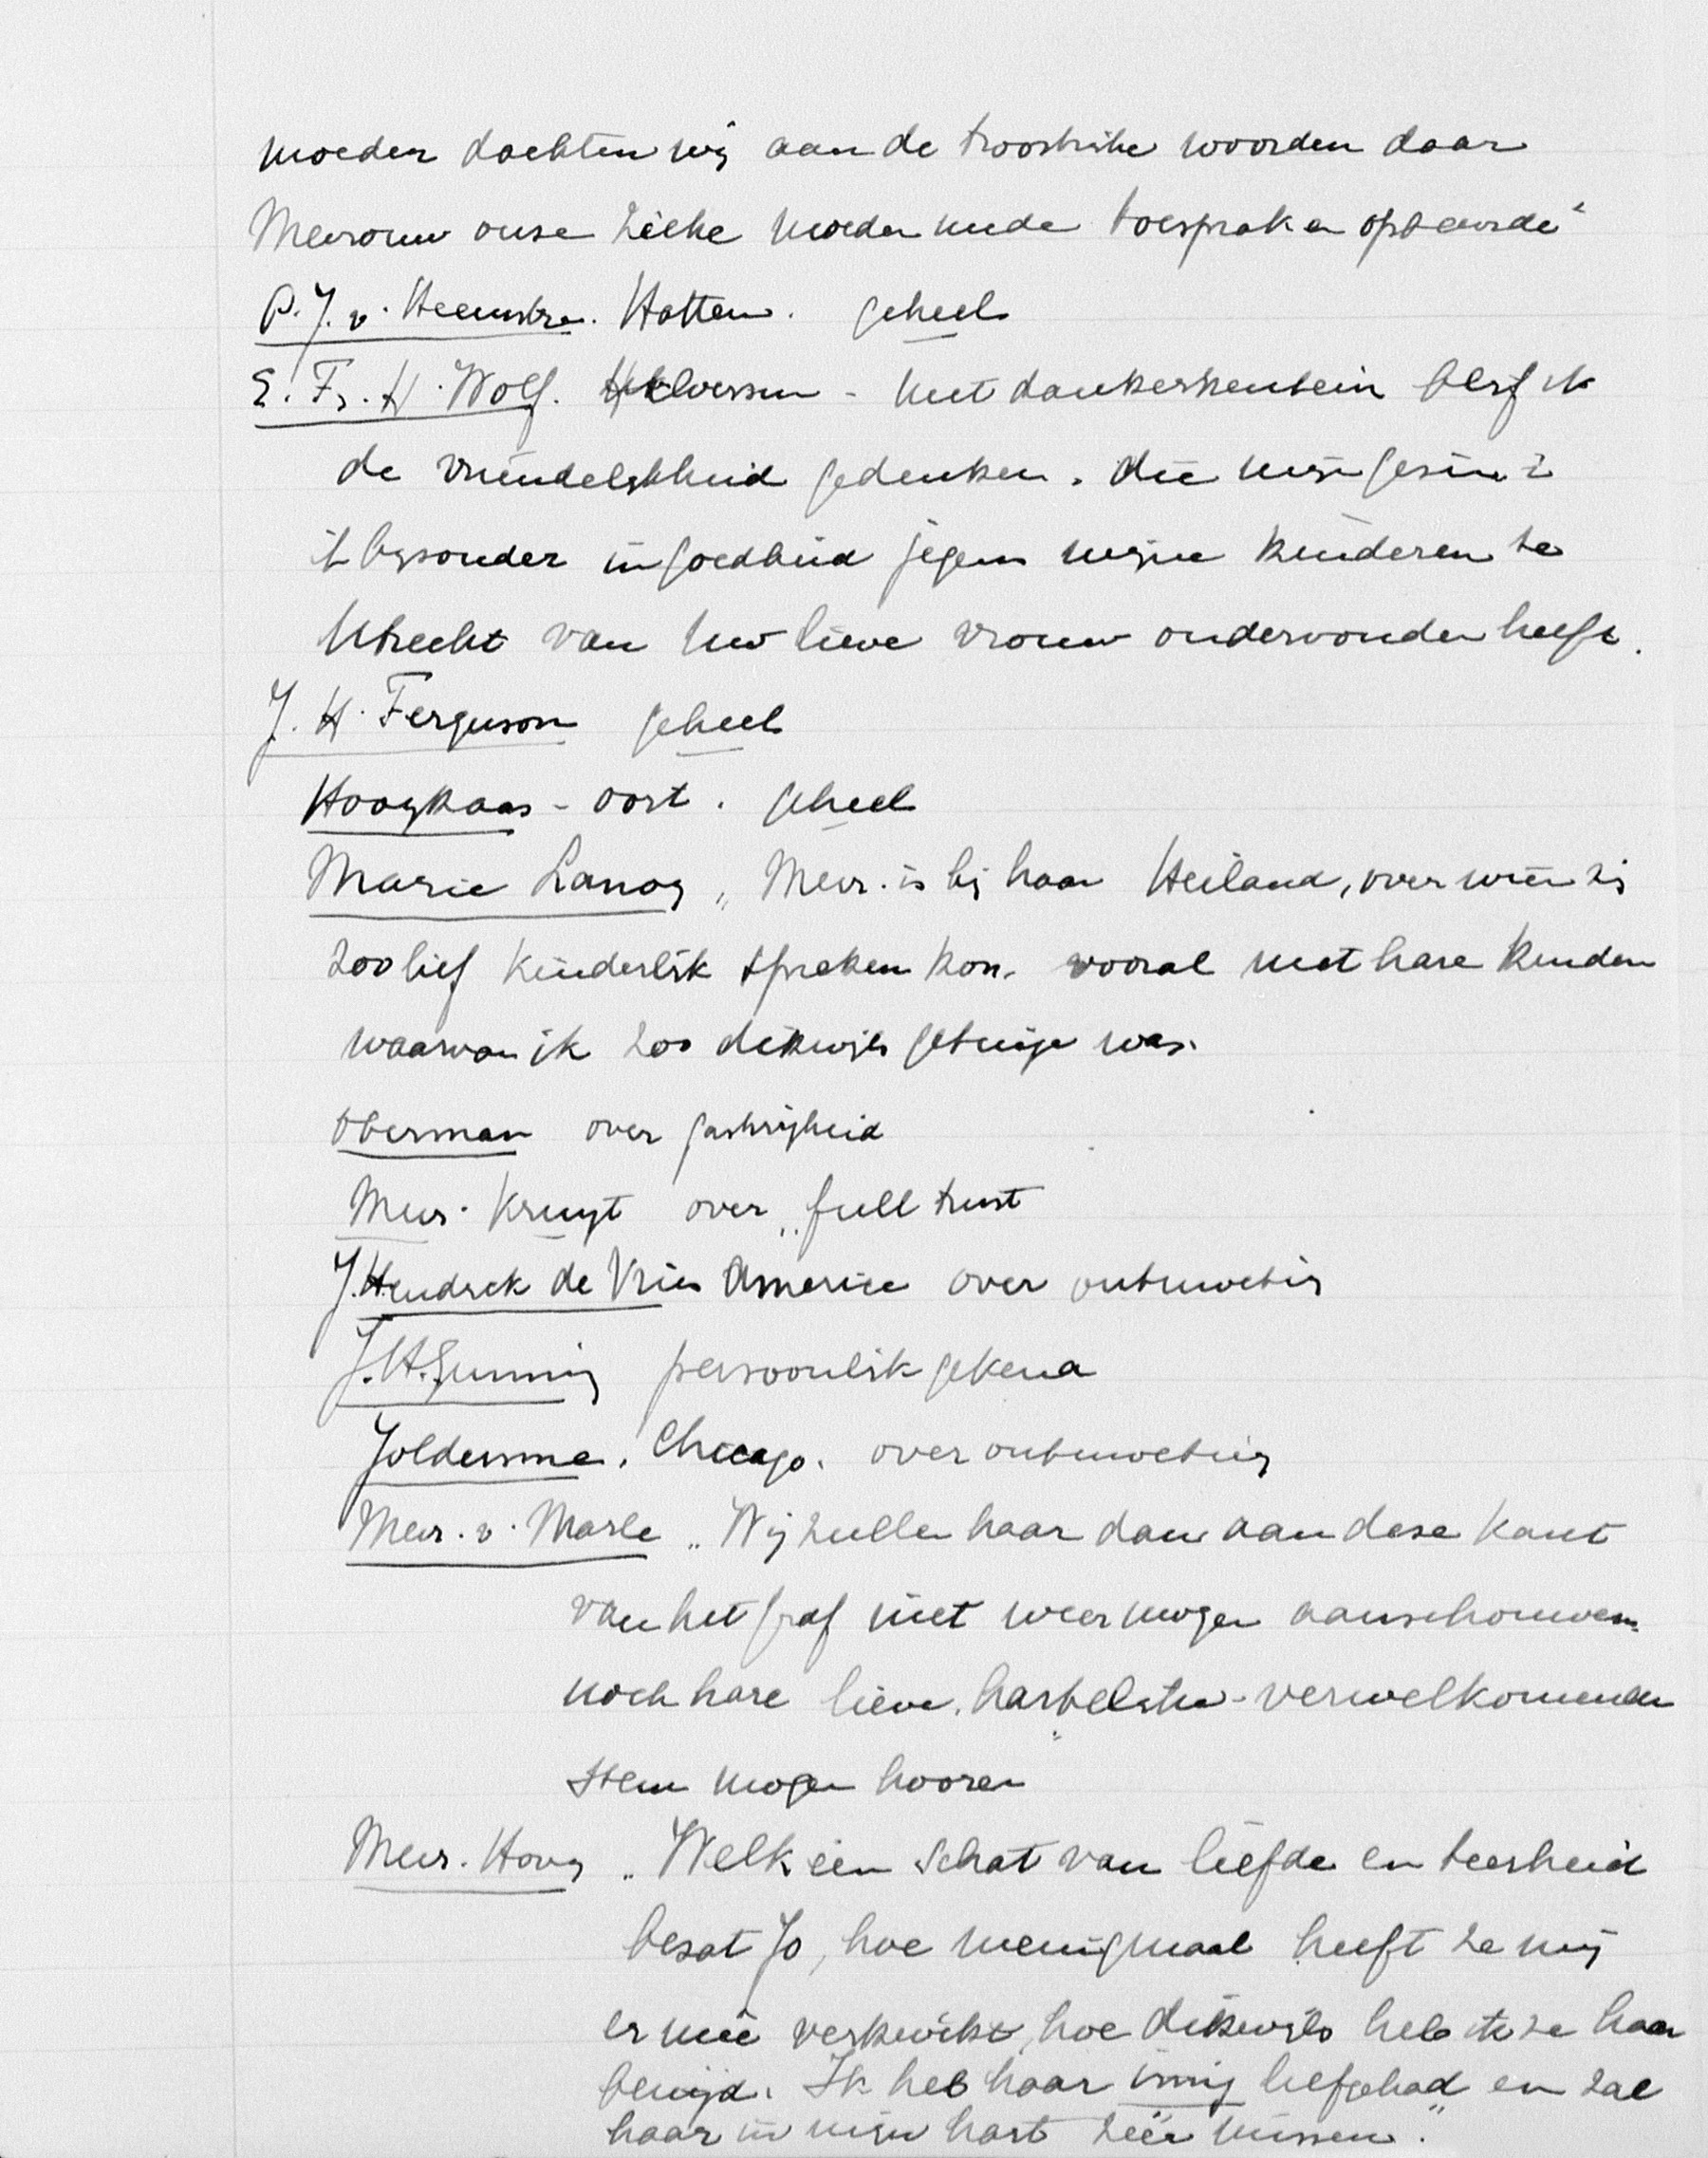 moeder dachten wij aan de troostrijke woorden daar
Mevrouw onze zieke moeder mede toesprak en opbeurde"
P. J. v. Heemstra. Hattem. geheel
E. Fr. H. Wolf. Hilversum - Met dankerkentenis blijf ik
de vriendelijkheid gedenken, die mijn gezin &
't bijzonder in goedheid jegens mijne kinderen te
Utrecht van Uw lieve vrouw ondervonden heeft.
J. H. Ferguson geheel
Hooykaas - Oort. geheel
Marie Lanoy „Mevr. is bij haar Heiland, over wien zij
zoo lief kinderlijk spreken kon. vooral met hare kinderen
waarvan ik zoo dikwijls getuige was.
Oberman over gastvrijheid
Mevr. Kruyt over „full trust
J. Hendrik de Vries America over ontmoeting
J. H. Gunning persoonlijk gekend
Joldersma. Chicago. over ontmoeting
Mevr. v. Marle „Wij zullen haar dan aan deze kant
van het graf niet weer mogen aanschouwen.
noch hare lieve, hartelijke - verwelkomende
stem mogen hooren"
Mevr. Hovy „Welk een schat van liefde en teerheid
bezat Jo, hoe menigmaal heeft ze mij
er mee verkwikt, hoe dikwijls heb ik ze haar
benijd. Ik heb haar innig liefgehad en zal
haar in mijn hart zéér missen."